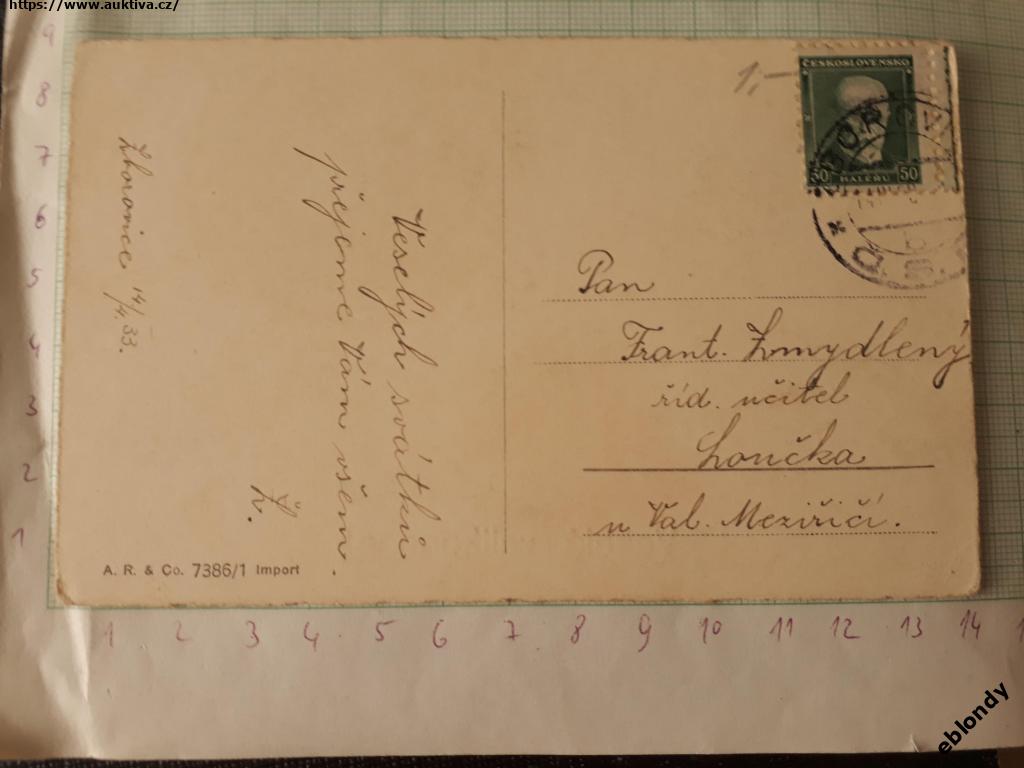 https://www.auktiva.cz/
Zborovice 14/4 33.
Veselých svátků
přejeme Vám všem.
Ž.
A. R. & Co. 7386/1 Import
1,-
ČESKOSLOVENSKO
50 HALÉŘŮ 50
Pan
Frant. Zmydlený
říd. učitel
Loučka
u Val. Meziříčí.
9
8
7
6
5
4
3
2
1
1 2 3 4 5 6 7 8 9 10 11 12 13 14
eblondy